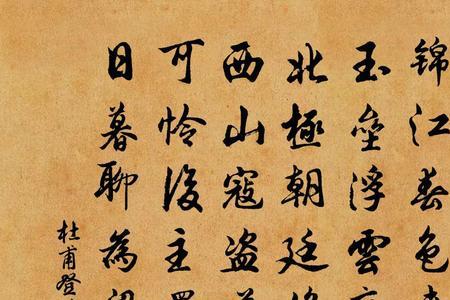 錦江春色
玉壘浮雲
北極朝廷
西山寇盗
可怜後主
日暮聊為
杜甫登